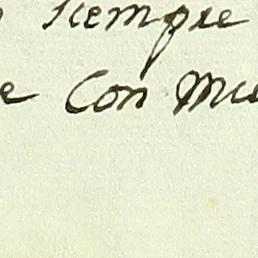 siempre
e con mu